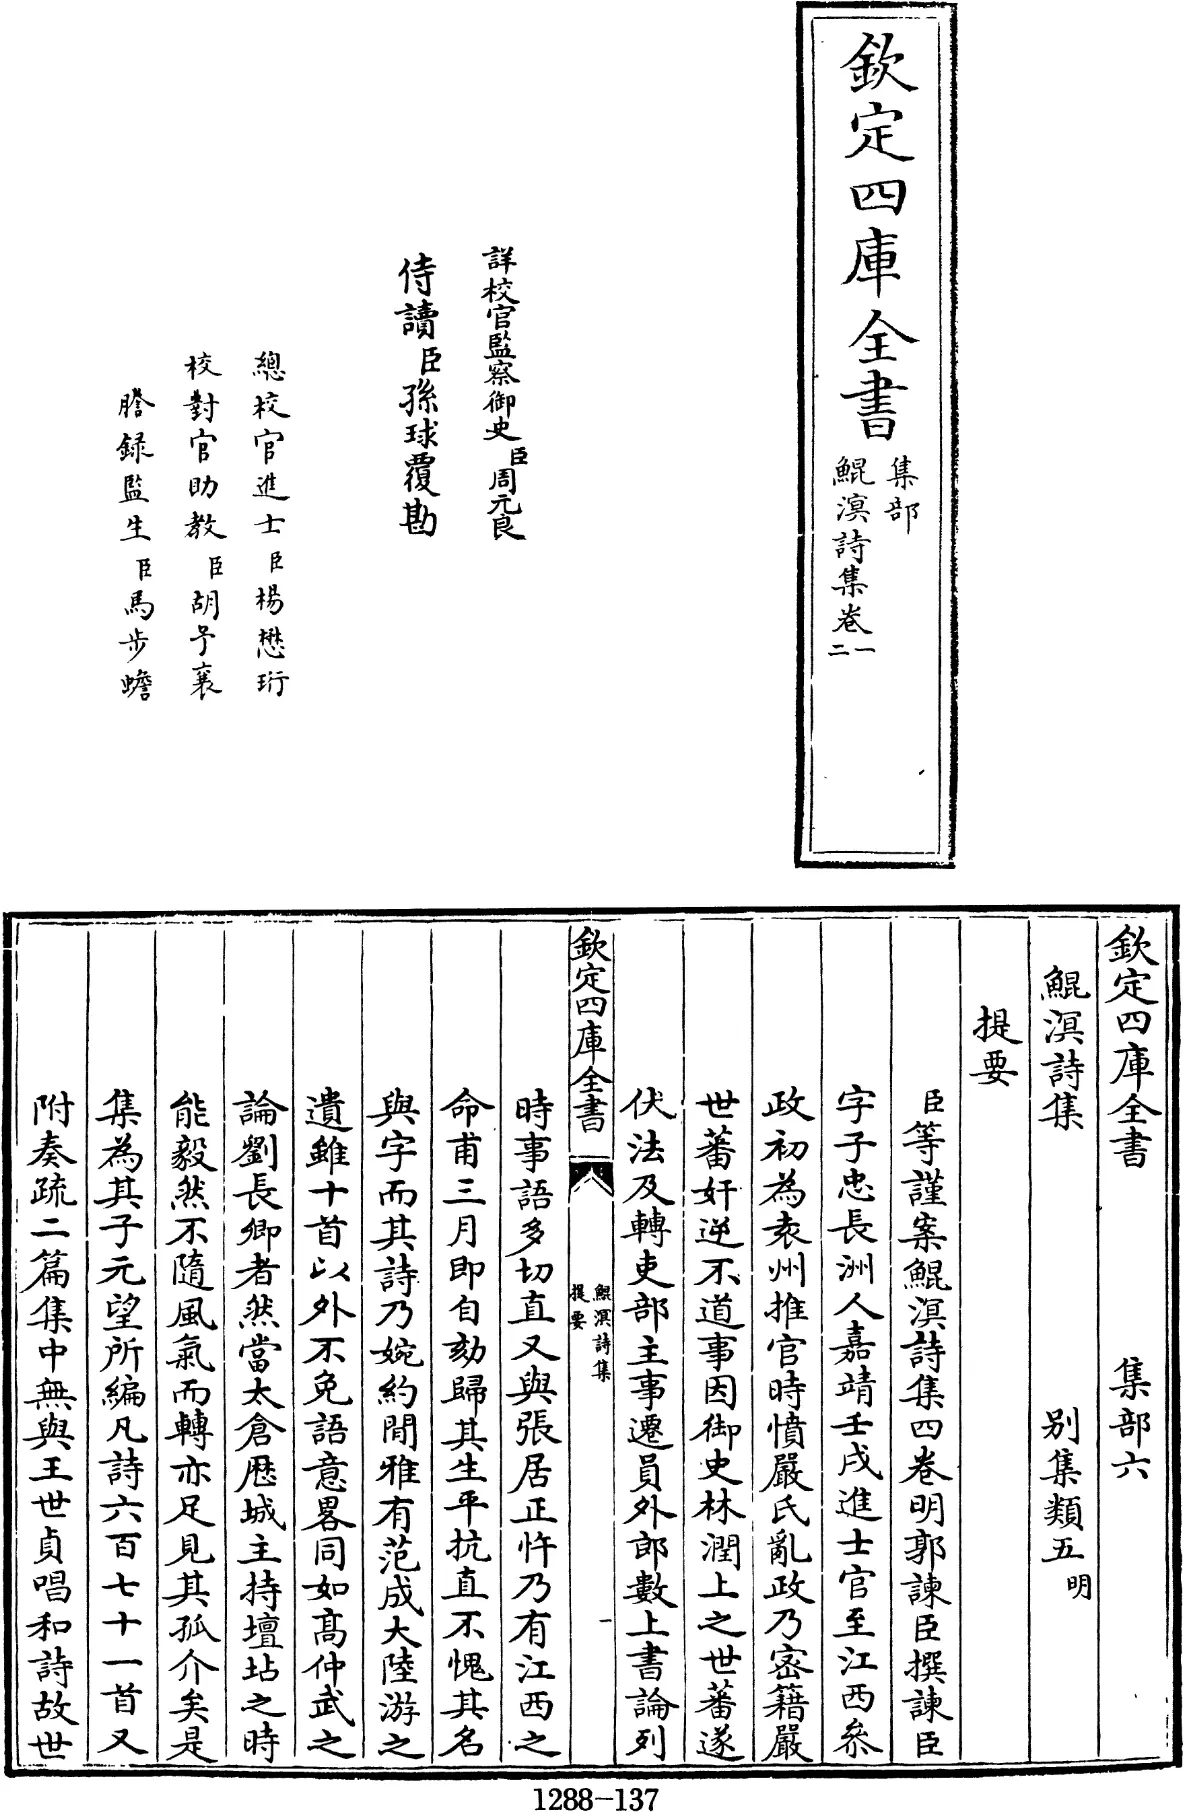 欽定四庫全書
集部
鯤溟詩集卷一二
詳校官監察御史臣周元良
侍讀臣孫球覆勘
總校官進士臣楊懋珩
校對官助教臣胡予襄
謄録監生臣馬步蟾
欽定四庫全書 集部六
鯤溟詩集 别集類五明
提要
臣等謹案鯤溟詩集四卷明郭諫臣撰諫臣
字子忠長洲人嘉靖壬戌進士官至江西叅
政初為袁州推官時憤嚴氏亂政乃密籍嚴
世蕃奸逆不道事因御史林潤上之世蕃遂
伏法及轉吏部主事遷員外郎數上書論列
欽定四庫全書
鯤溟詩集
提要
一
時事語多切直又與張居正忤乃有江西之
命甫三月即自劾歸其生平抗直不愧其名
與字而其詩乃婉約閒雅有范成大陸游之
遺雖十首以外不免語意畧同如髙仲武之
論劉長卿者然當太倉歴城主持壇坫之時
能毅然不隨風氣而轉亦足見其孤介矣是
集為其子元望所編凡詩六百七十一首又
附奏疏二篇集中無與王世貞唱和詩故世
1288-137